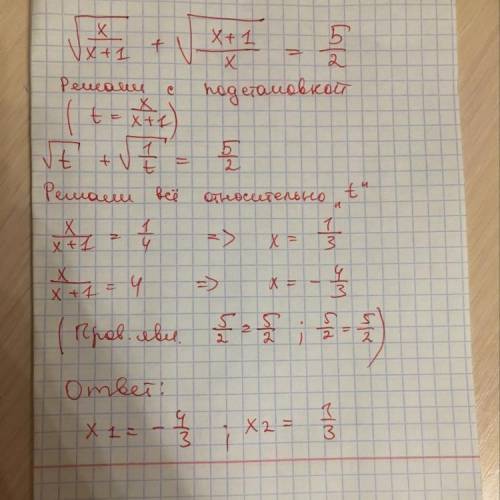 √(x/(x+1)) + √((x+1)/x) = 5/2
Решаем с подстановкой
(t = x/(x+1))
√t + √(1/t) = 5/2
Решаем всё относительно „t"
x/(x+1) = 1/4 => x = 1/3
x/(x+1) = 4 => x = -4/3
(Пров. явл. 5/2 = 5/2 ; 5/2 = 5/2)
Ответ:
x1 = -4/3 ; x2 = 1/3